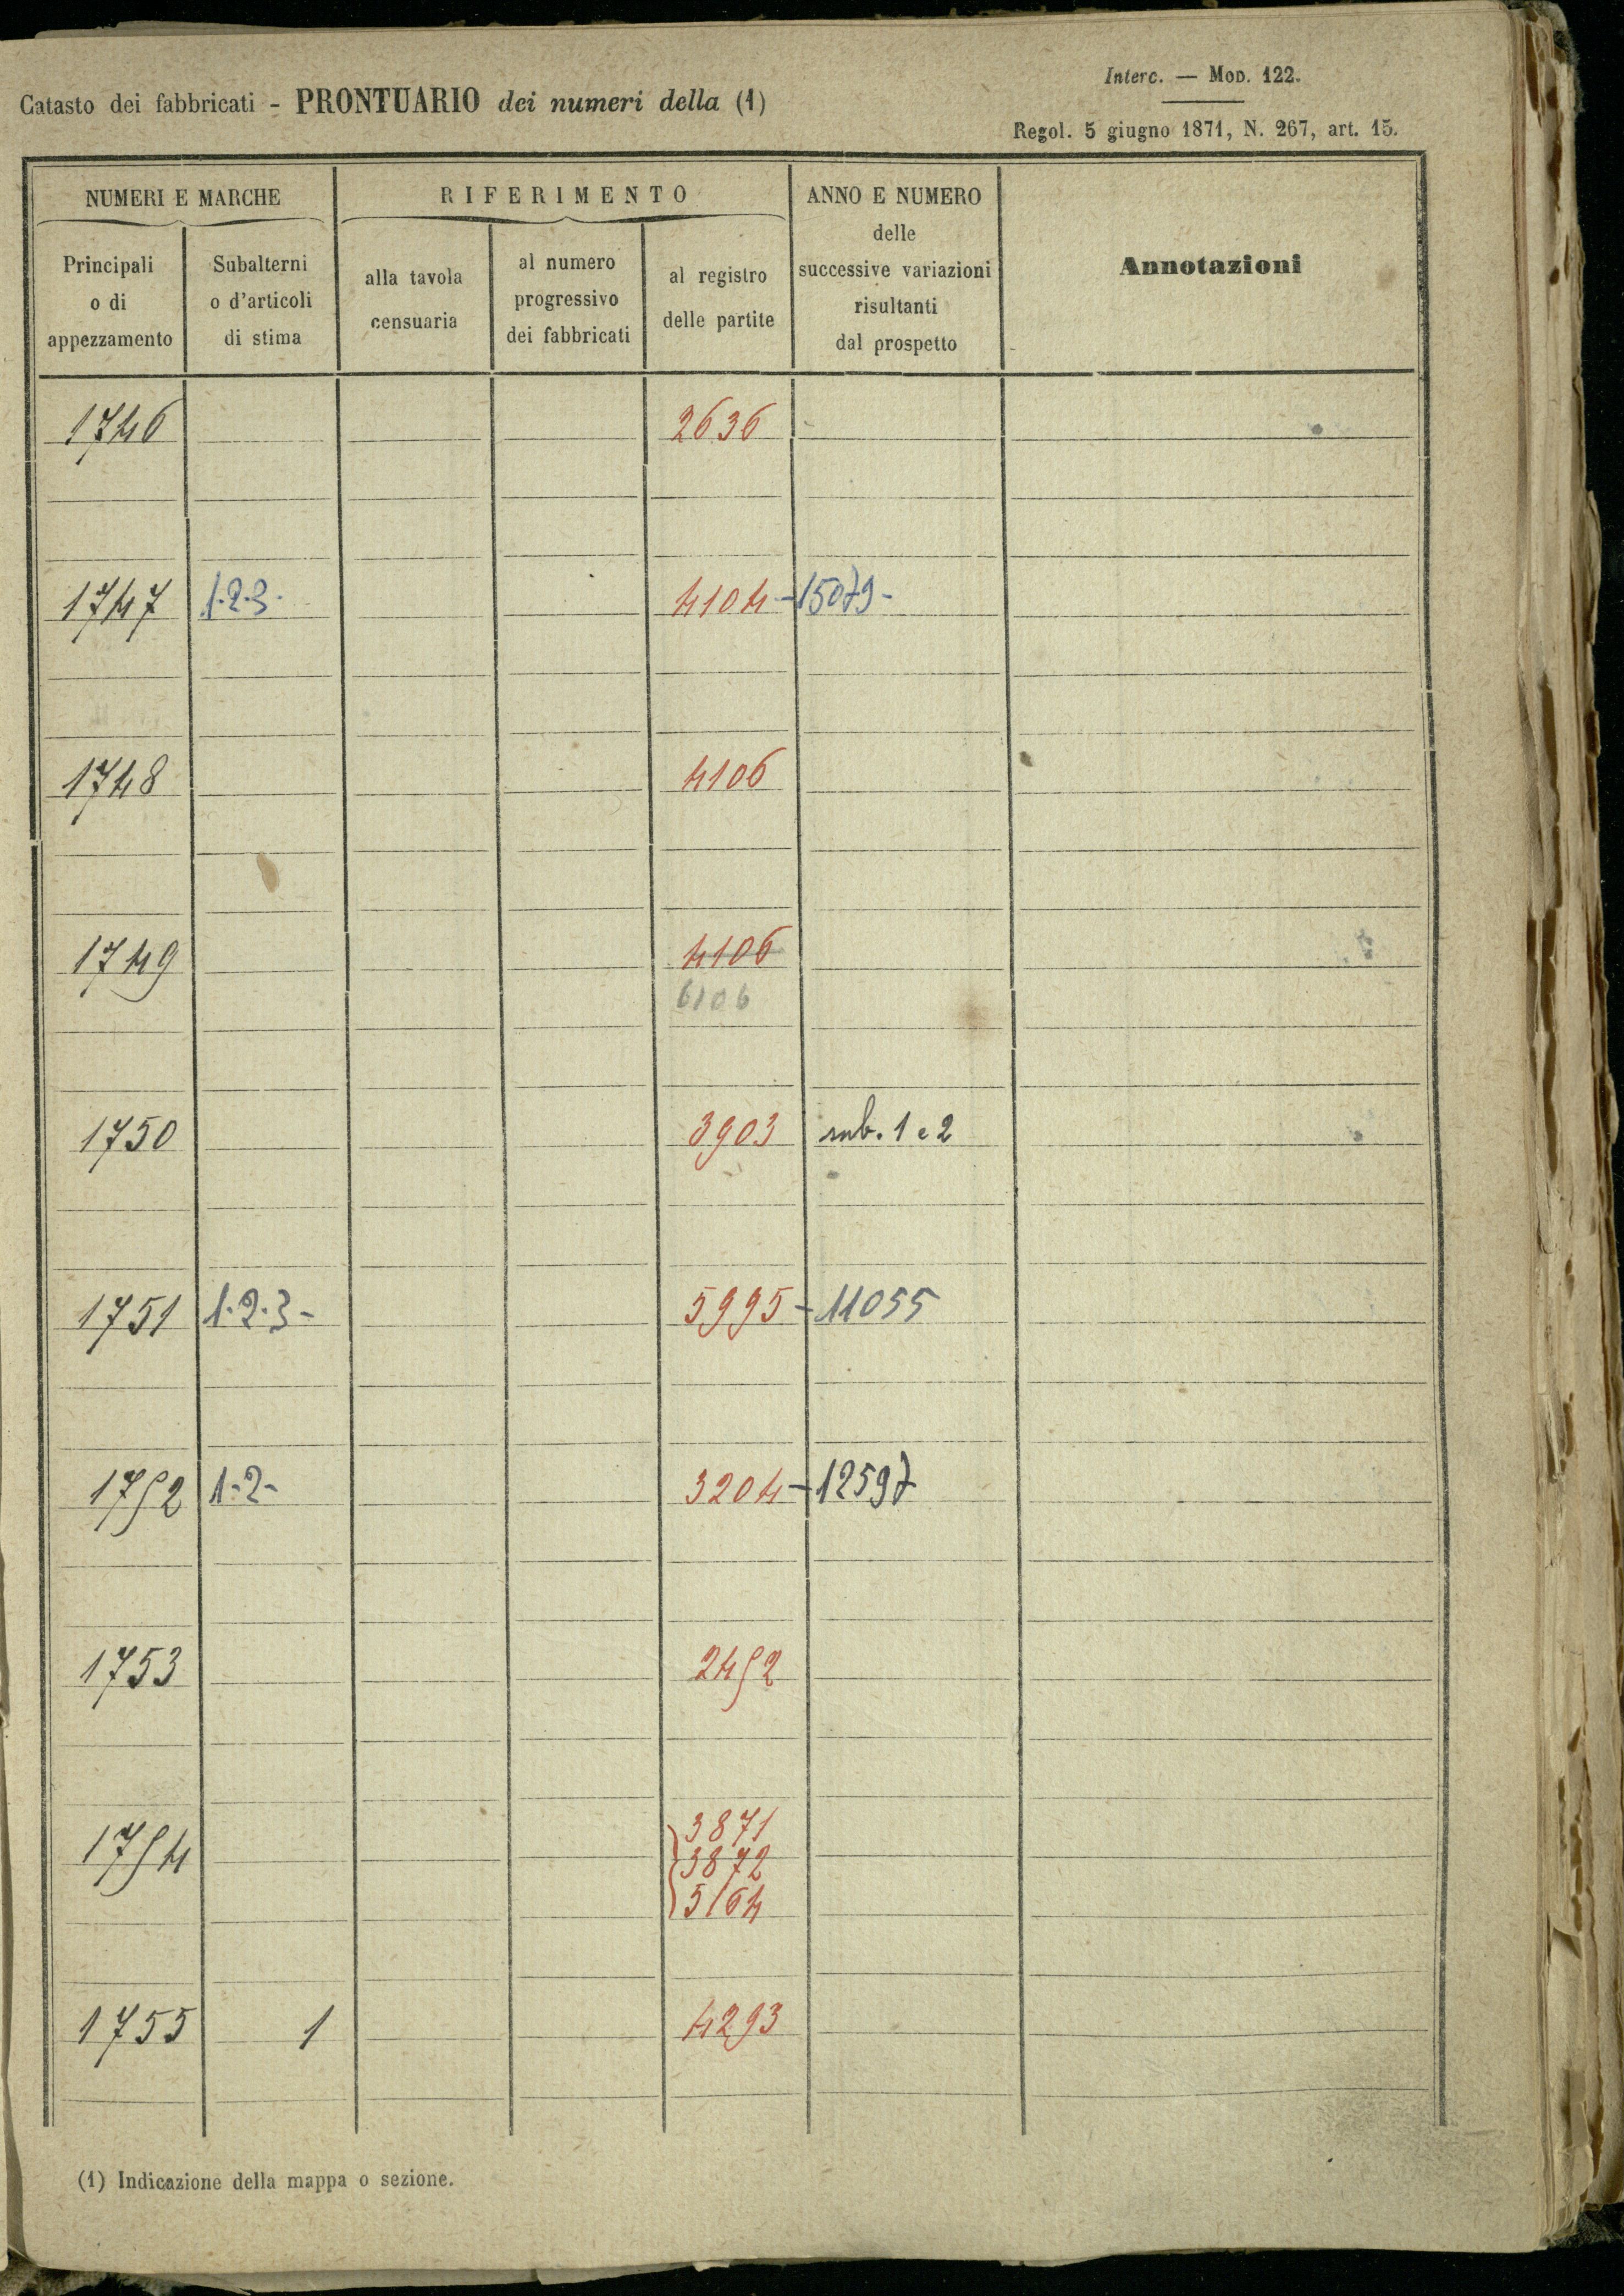 Interc. — Mod. 122.
Catasto dei fabbricati - PRONTUARIO dei numeri della (1)
Regol. 5 giugno 1871, N. 267, art. 15.
NUMERI E MARCHE
RIFERIMENTO
ANNO E NUMERO
delle
successive variazioni
risultanti
dal prospetto
Annotazioni
Principali
o di
appezzamento
Subalterni
o d'articoli
di stima
alla tavola
censuaria
al numero
progressivo
dei fabbricati
al registro
delle partite
1746 2636
1747 1.2.3. 4104 - 15079 -
1748 4106
1749 4106
6106
1750 3903 sub. 1 e 2
1751 1.2.3 - 5995 - 11055
1752 1-2- 3204 - 12597
1753 2452
3871
1754 3872
5164
1755 1 4293
(1) Indicazione della mappa o sezione.